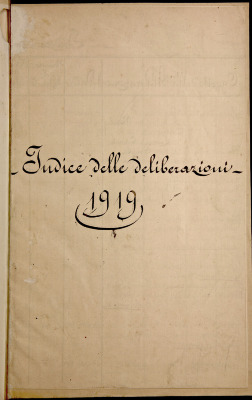 Indice delle deliberazioni
1919